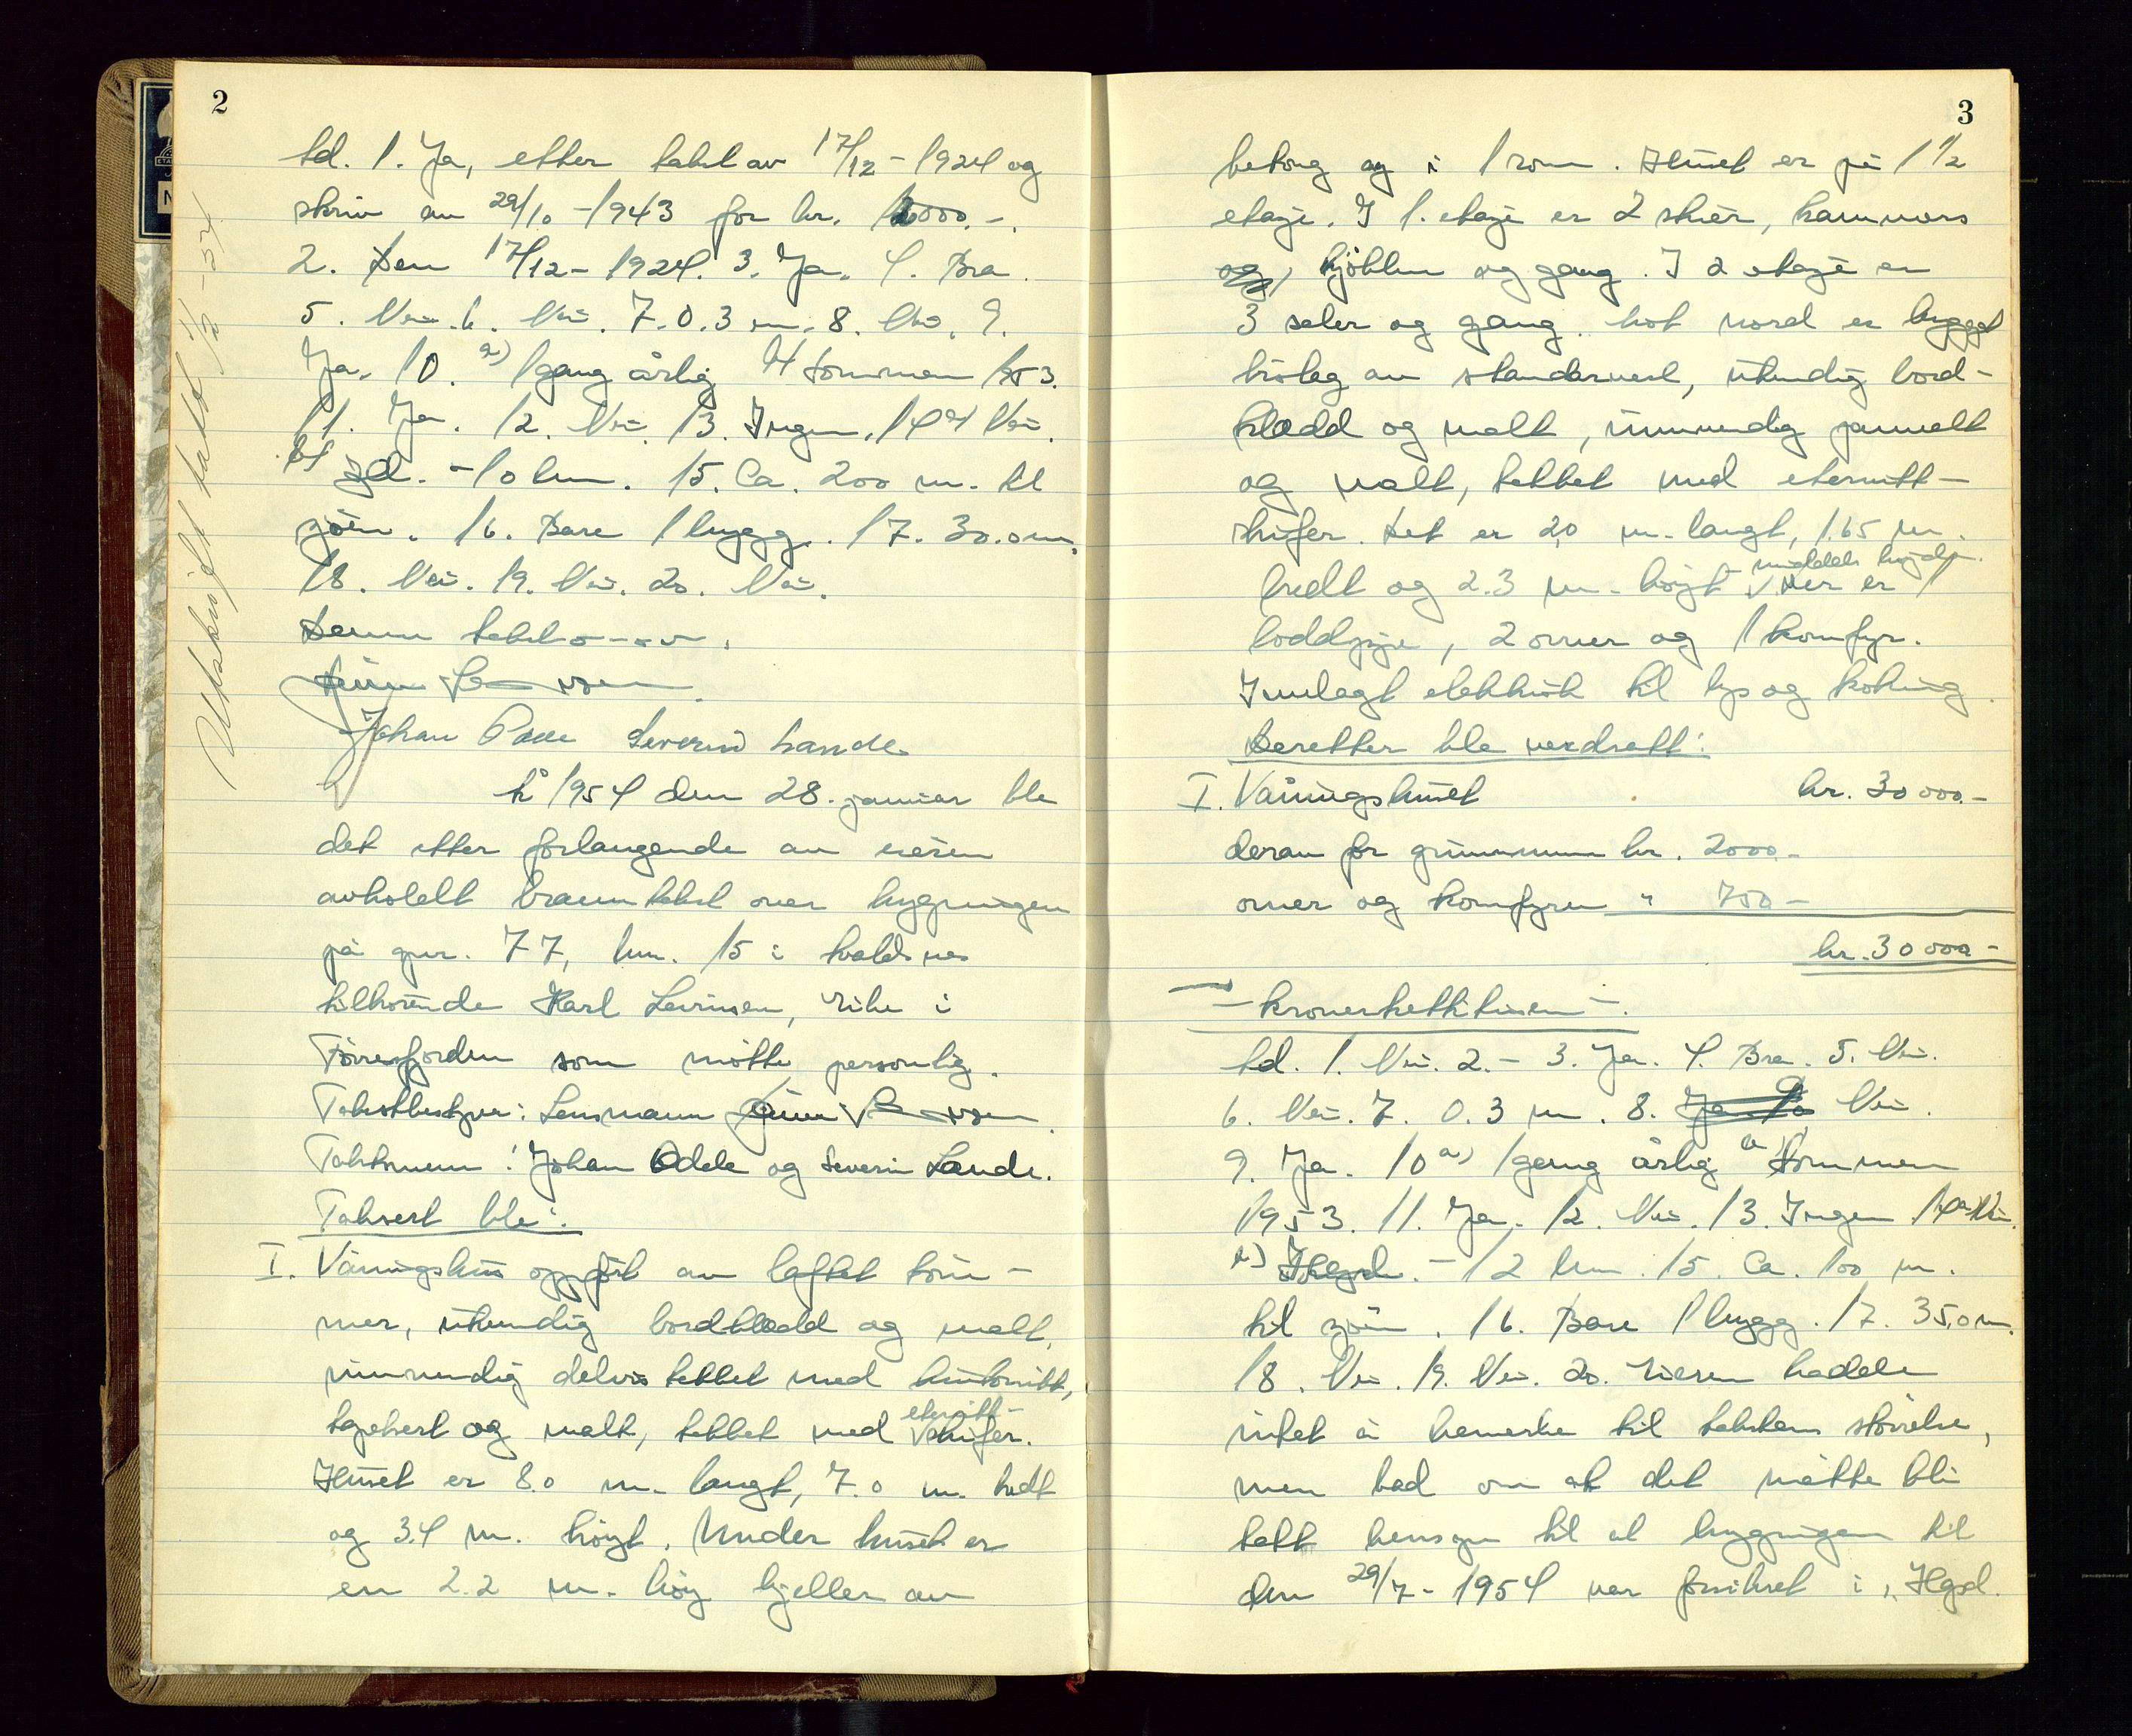 2
td. 1. Ja, etter takst av 17/12-1924 og
skriv av 29/10-1943 for kr. 12000.-.
2. Den 17/12-1924. 3. Ja. 4. Bra.
5. Nei. 6. Nei. 7. 0.3 m. 8. Nei. 9.
Ja. 10. a) 1 gang årlig b) Sommeren 1953.
11. Ja. 12. Nei. 13. Ingen. 14 a) Nei.
b) - 10 km. 15. Ca. 200 m. til
sjøen. 16. Bare 1 bygg. 17. 30.0 m.
18. Nei. 19. Nei. 20. Nei.
Denne takst
Johan Odde Severin Lande
År 1954 den 28. januar ble
det etter forlangende av eieren
avholdt branntakst over bygningen
på gnr. 77, bnr. 15 i Avaldsnes
tilhørende Karl Levinsen, Eike i
Førresfjorden som møtte personlig.
Takstbestyrer: Lensmann
Takstmenn: Johan Odde og Severin Lande.
Taksert ble:
I. Våningshus oppført av laftet tøm-
mer, utvendig bordkledd og malt,
innvendig delvis tekket med huntonitt,
tapetsert og malt, tekket med eternitt-
skifer.
Huset er 8.0 m. langt, 7.0 m. bredt
og 3.4 m. høyt. Under huset er
en 2.2 m. høy kjeller av
Utskrift takst 1/2-54
3
betong og i 1 rom. Huset er på 1 1/2
etasje. I 1. etasje er 2 stuer, kammers
og, kjøkken og gang. I 2 etasje er
3 saler og gang. Mot nord er bygget
bislag av standerverk, utvendig bord-
kledd og malt, innvendig pannelt
og malt, tekket med eternitt-
skifer. Det er 2,0 m. langt, 1.65 m.
bredt og 2.3 m. høyt middels høyde. Her er 1
loddpipe, 2 ovner og 1 komfyr.
Innlagt elektrisk til lys og koking.
Deretter ble verdsatt:
I. Våningshuset kr. 30000.-
derav for grunnmuren kr. 2000.-
ovner og komfyren " 700-
kr. 30000-
- kronertrettitusen -.
td. 1. Nei. 2. - 3. Ja. 4. Bra. 5. Nei.
6. Nei. 7. 0.3 m. 8. Nei.
9. Ja. 10 a) 1 gang årlig b) Sommeren
1953. 11. Ja. 12. Nei. 13. Ingen 14 a) Nei.
b) - 12 km. 15. Ca. 100 m.
til sjøen. 16. Bare 1 bygg. 17. 35,0 m.
18. Nei. 19. Nei. 20. Eieren hadde
intet å bemerke til takstens størrelse,
men bad om at det måtte bli
tatt hensyn til at bygningen til
den 29/7-1954 var forsikret i "Hgsd.